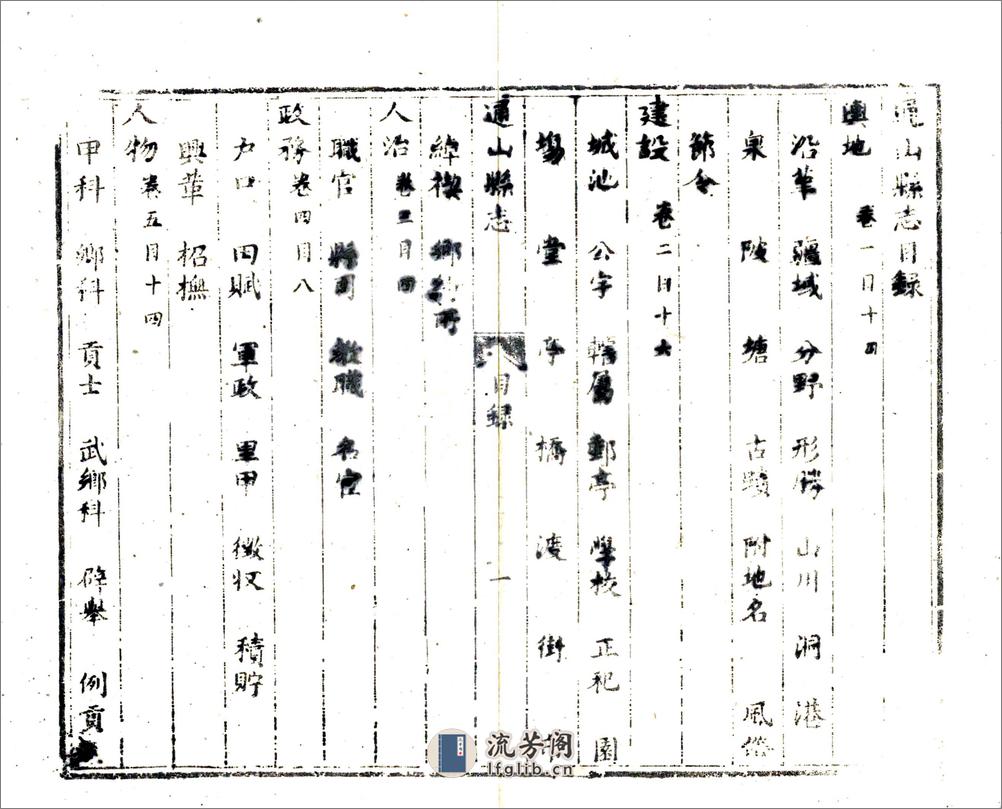 通山縣志目錄
輿地 卷一 目十四
沿革 疆域 分野 形勝 山川 洞 港
泉 陂 塘 古蹟 附地名 風俗
節令
建設 卷二 目十六
城池 公宇 轄屬 郵亭 學校 正祀 園
塲 堂 亭 橋 渡 街
通山縣志 目錄 一
綽楔
人治 卷三 目四
職官 縣司 教職 名宦
政務 卷四 目八
户口 田賦 軍政 里甲 徵収 積貯
興華 招撫
人物 卷五 目十四
甲科 鄉科 貢士 武鄉科 辟舉 例貢
流芳阁
lfglib.cn